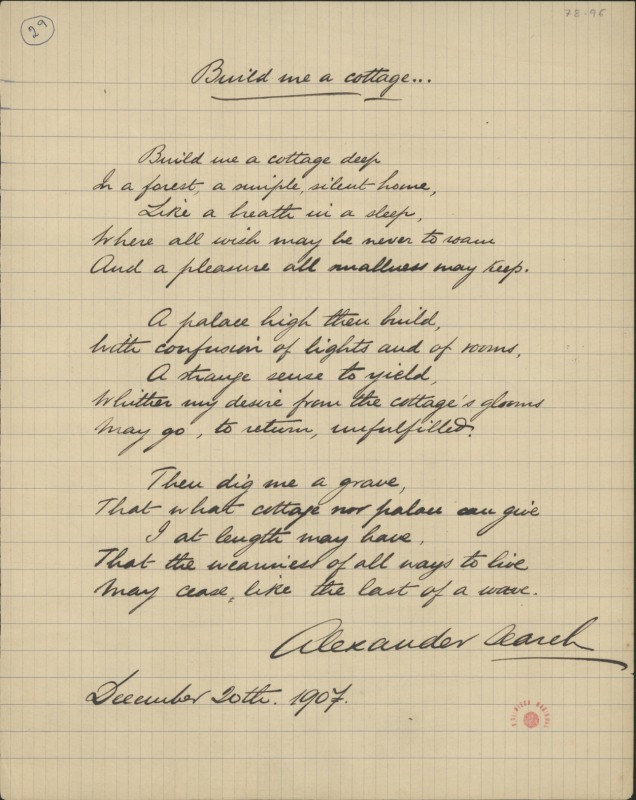 29
78-96
Build me a cottage...
Build me a cottage deep
In a forest, a simple, silent home,
Like a breath in a sleep,
Where all wish may be never to roam
And a pleasure all smallness may keep.
A palace high then build,
With confusion of lights and of rooms,
A strange sense to yield,
Whither my desire from the cottage's glooms
May go, to return, unfulfilled.
Then dig me a grave,
That what cottage nor palace can give
I at length may have,
That the weariness of all ways to live
May cease, like the last of a wave.
Alexander Search
December 20th. 1907.